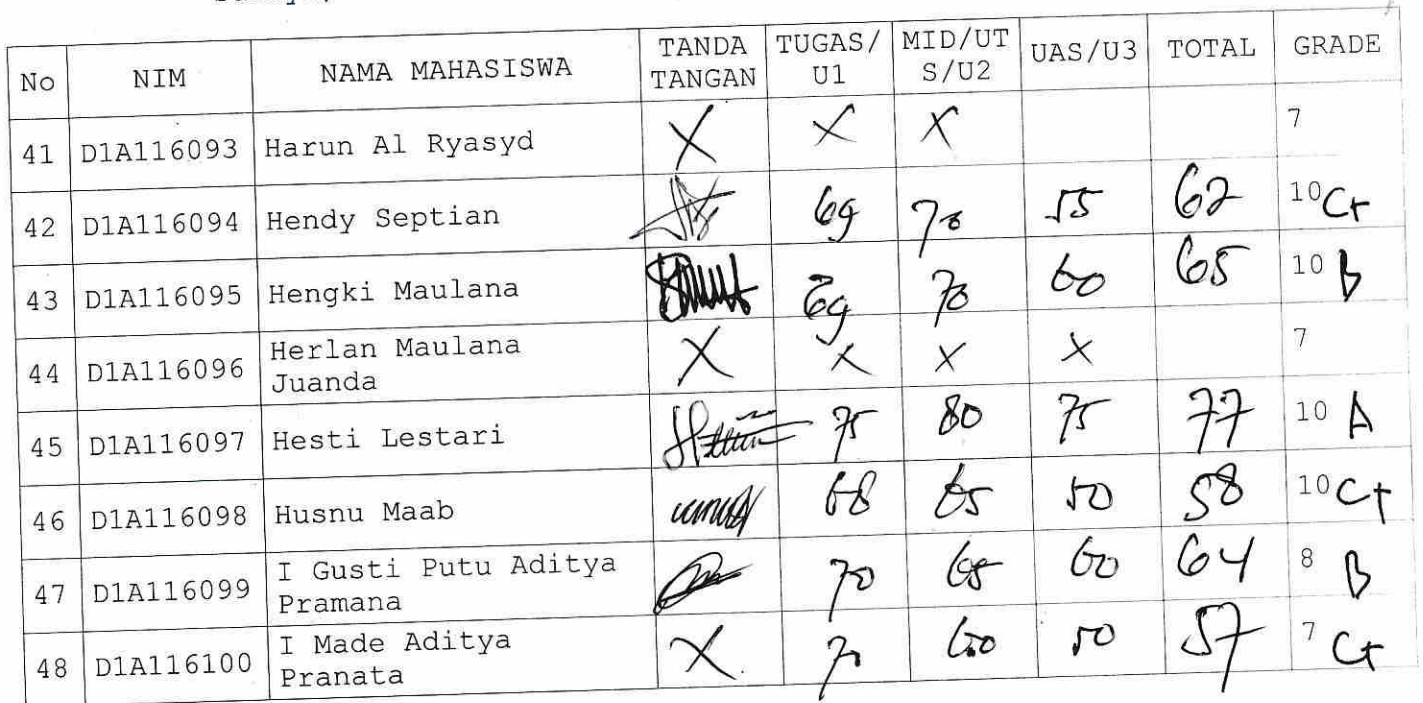 No NIM NAMA MAHASISWA TANDA TANGAN TUGAS/U1 MID/UTS/U2 UAS/U3 TOTAL GRADE
41 D1A116093 Harun Al Ryasyd X X X 7
42 D1A116094 Hendy Septian 69 70 55 62 10 C+
43 D1A116095 Hengki Maulana 69 70 60 65 10 B
44 D1A116096 Herlan Maulana Juanda X X X X 7
45 D1A116097 Hesti Lestari 75 80 75 77 10 A
46 D1A116098 Husnu Maab 68 65 50 58 10 C+
47 D1A116099 I Gusti Putu Aditya Pramana 70 65 60 64 8 B
48 D1A116100 I Made Aditya Pranata X 70 60 50 57 7 C+